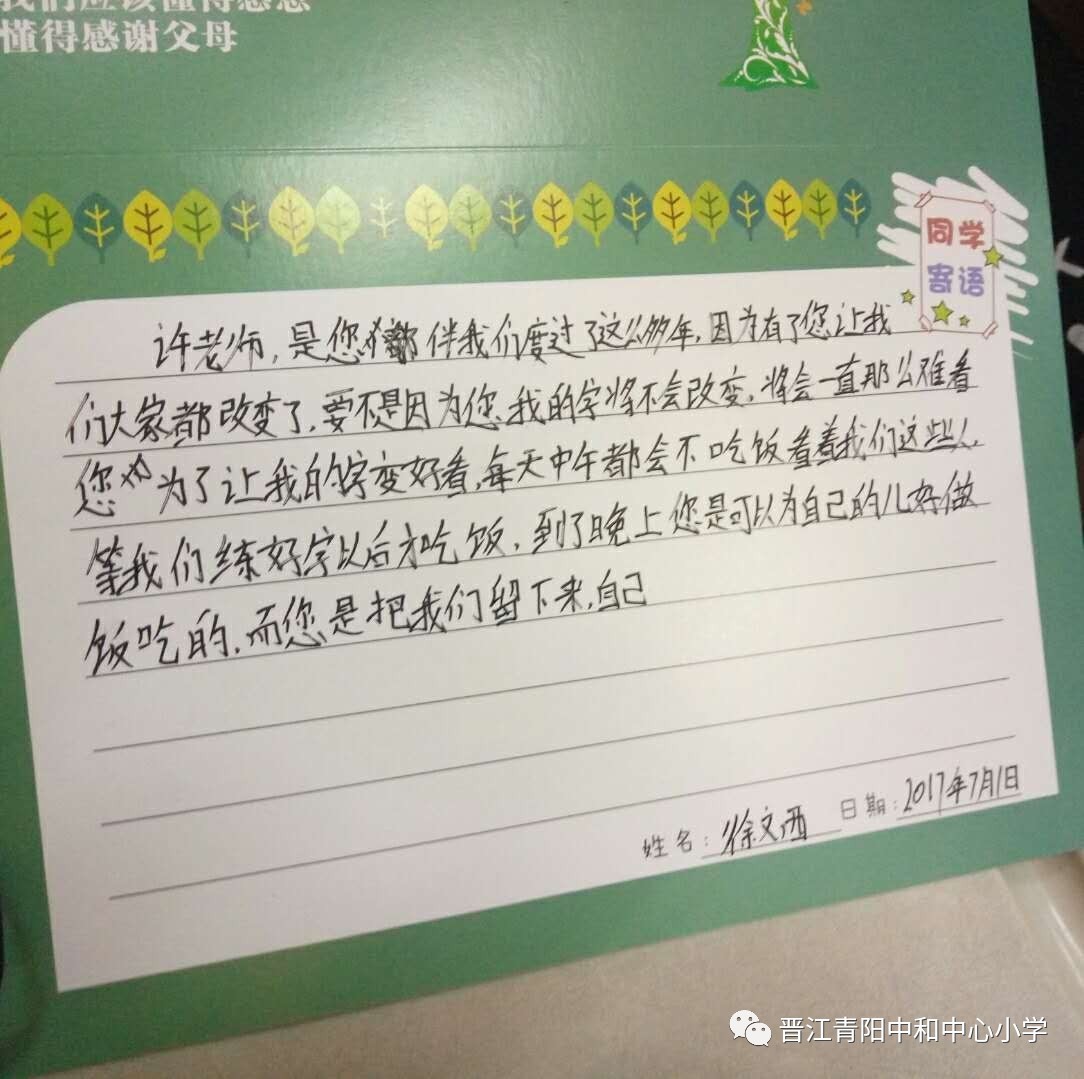 我们应该懂得感恩
懂得感谢父母
同学
寄语
许老师，是您伴我们度过了这么多年，因为有了您让我
们大家都改变了，要不是因为您，我的字将不会改变，将会一直那么难看
您为了让我的字变好看，每天中午都会不吃饭看着我们这些人，
等我们练好字以后才吃饭，到了晚上您是可以为自己的儿好做
饭吃的，而您是把我们留下来，自己
姓名：徐文西 日期：2017年7月1日
晋江青阳中和中心小学